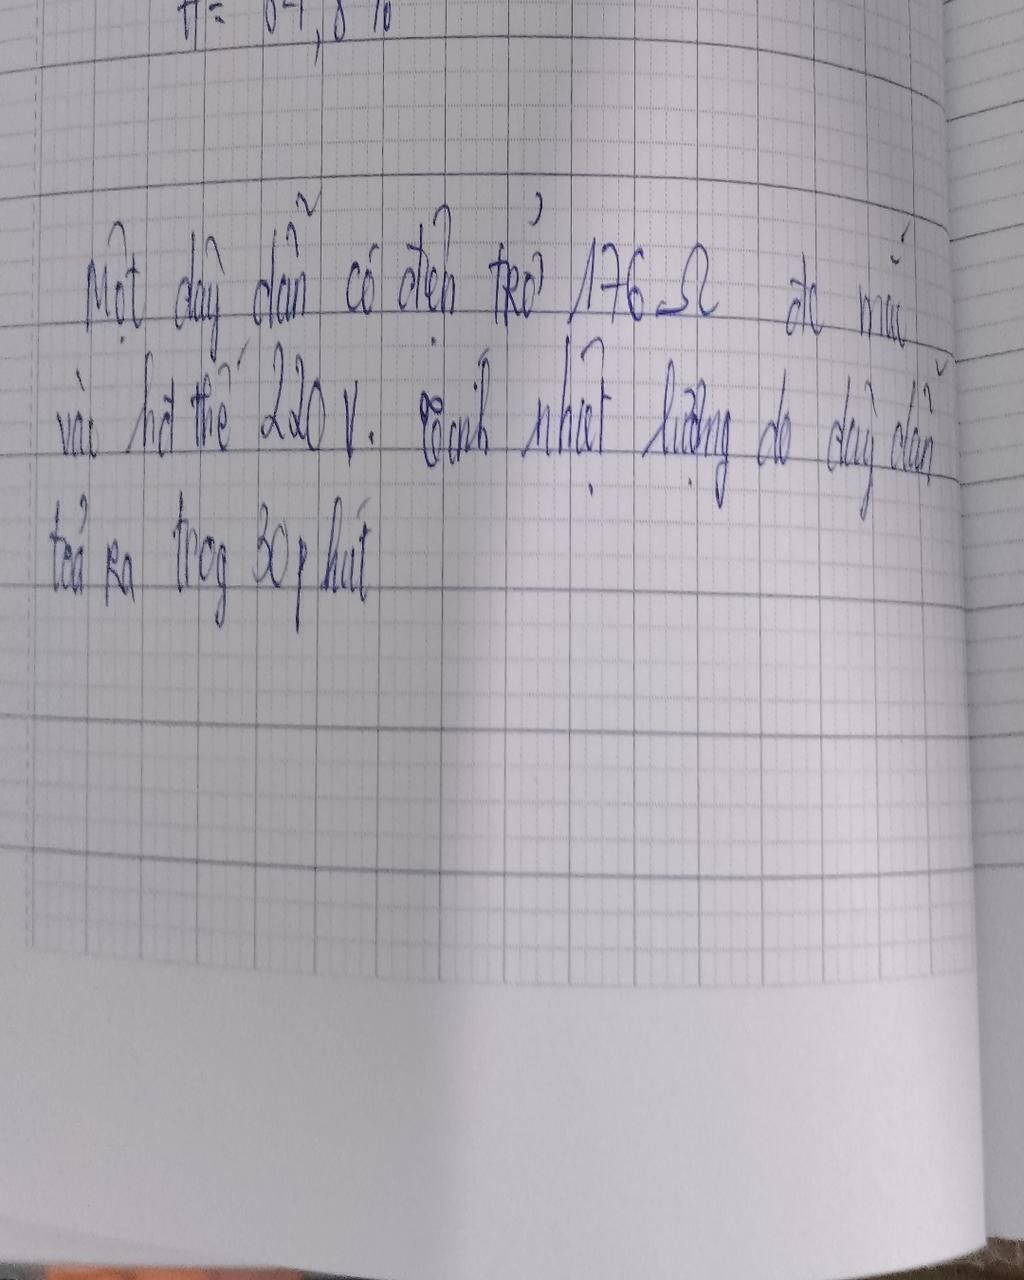 H = 84,8 %
Một dây dẫn có điện trở 176 Ω đc mắc
vào hđ thế 220 V. Tính nhiệt lượng do dây dẫn
toả ra trog 30 phút